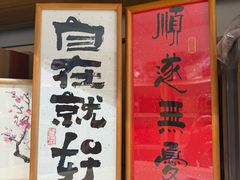 自在就好
順遂無憂